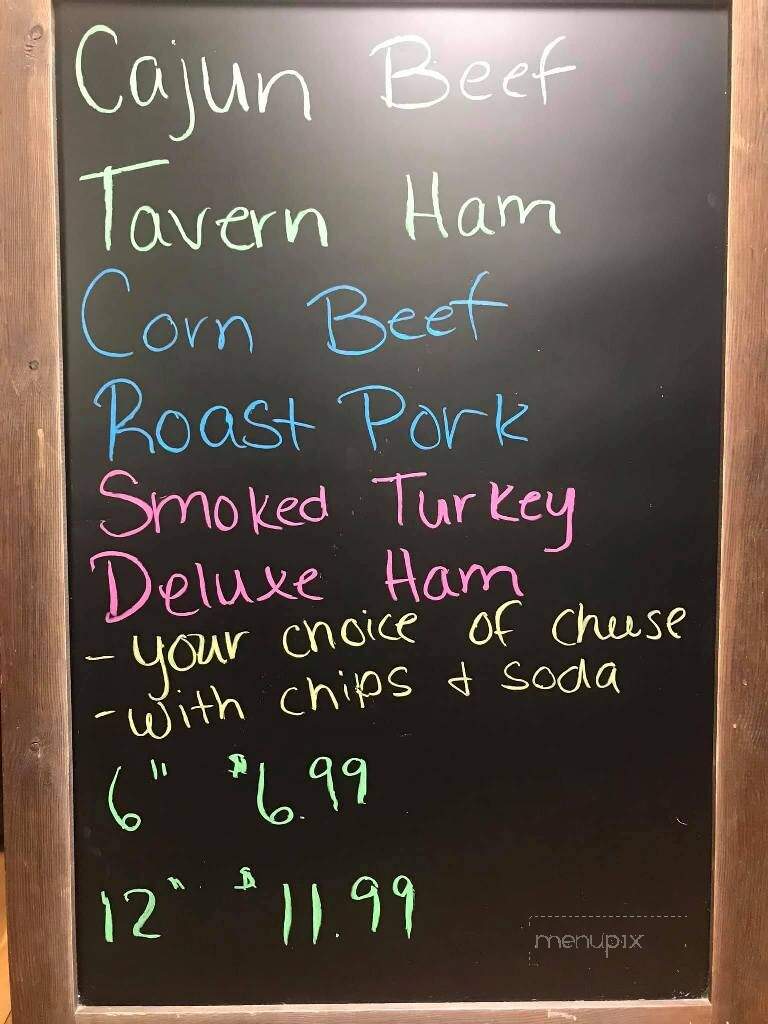 Cajun Beef
Tavern Ham
Corn Beef
Roast Pork
Smoked Turkey
Deluxe Ham
- your choice of cheese
- with chips & soda
6" $6.99
12" $11.99
menupix